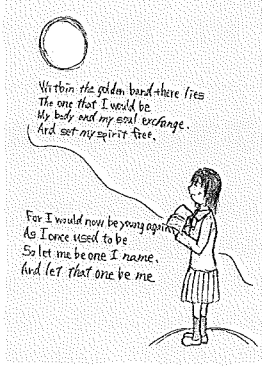 Within the golden band there lies
The one that I would be
My body and my soul exchange.
And set my spirit free.
For I would now be young again
As I once used to be
So let me be one I name.
And let that one be me